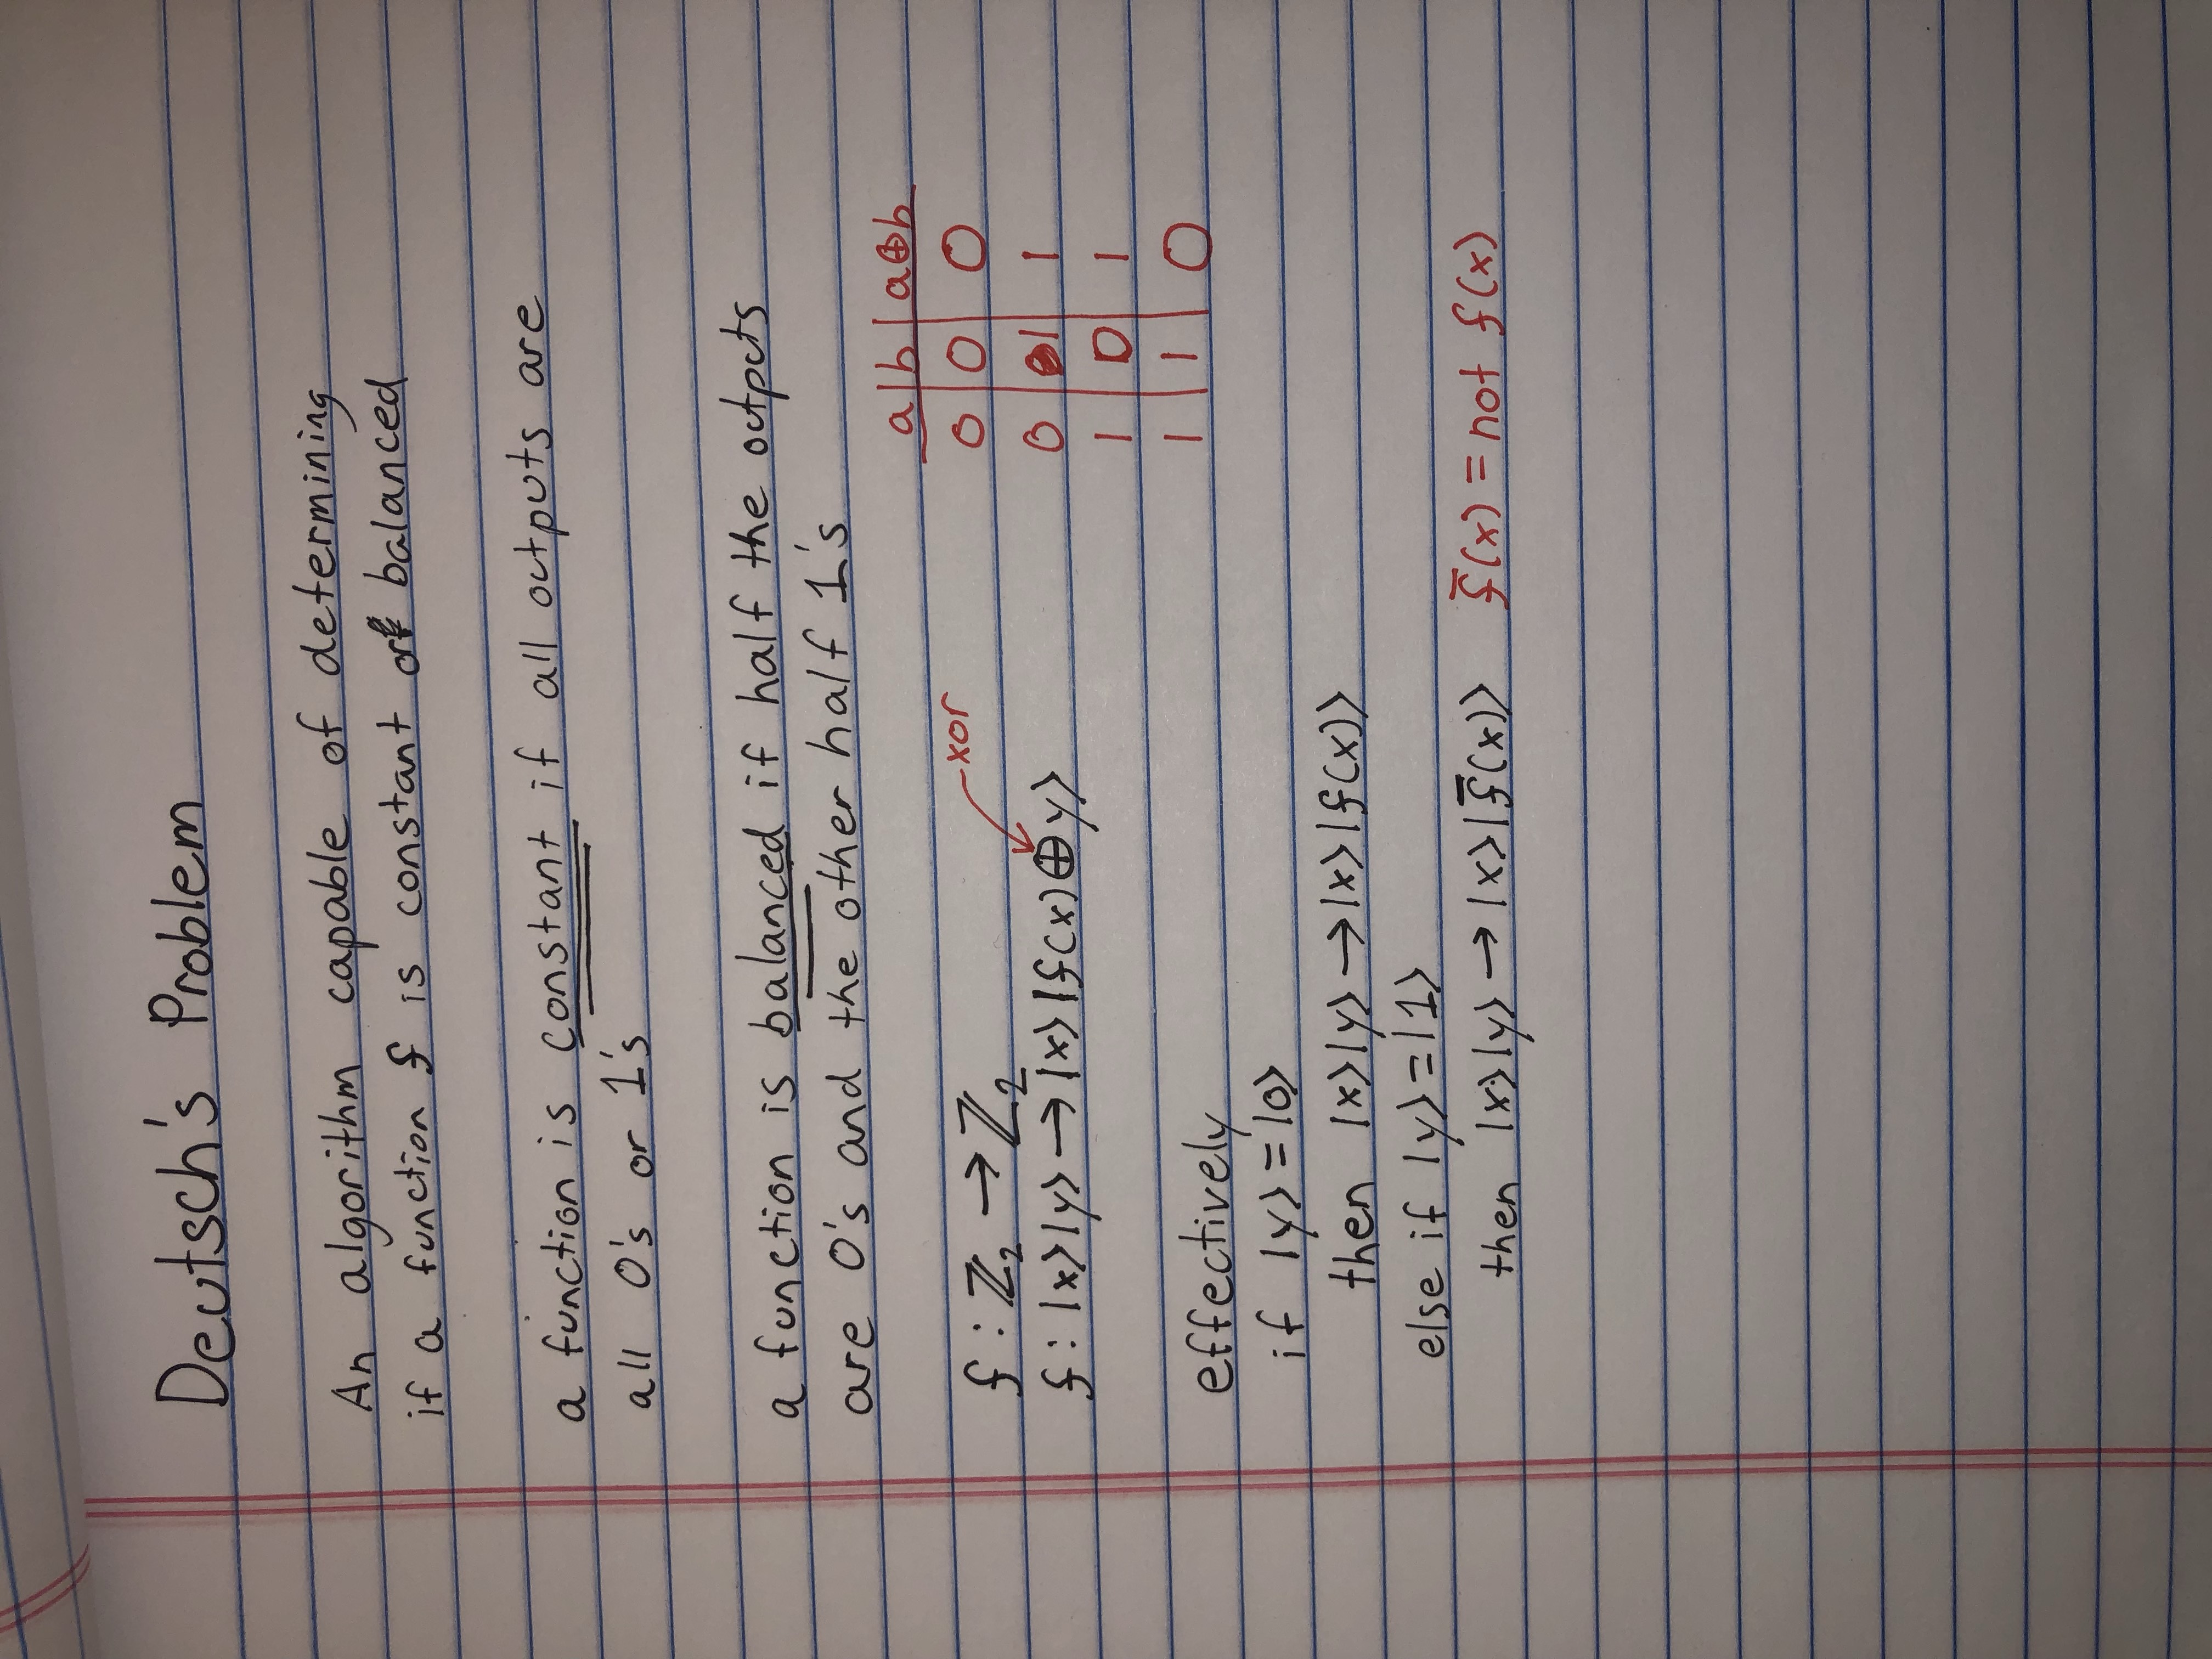 Deutsch's Problem
An algorithm capable of determining
if a function f is constant or balanced
a function is constant if all outputs are
all 0's or 1's
a function is balanced if half the outputs
are 0's and the other half 1's
xor
f : ℤ₂ → ℤ₂
f : |x⟩|y⟩ → |x⟩|f(x)⊕y⟩
a | b | a⊕b
0 | 0 | 0
0 | 1 | 1
1 | 0 | 1
1 | 1 | 0
effectively
if |y⟩ = |0⟩
then |x⟩|y⟩ → |x⟩|f(x)⟩
else if |y⟩ = |1⟩
then |x⟩|y⟩ → |x⟩|f̄(x)⟩ f̄(x) = not f(x)